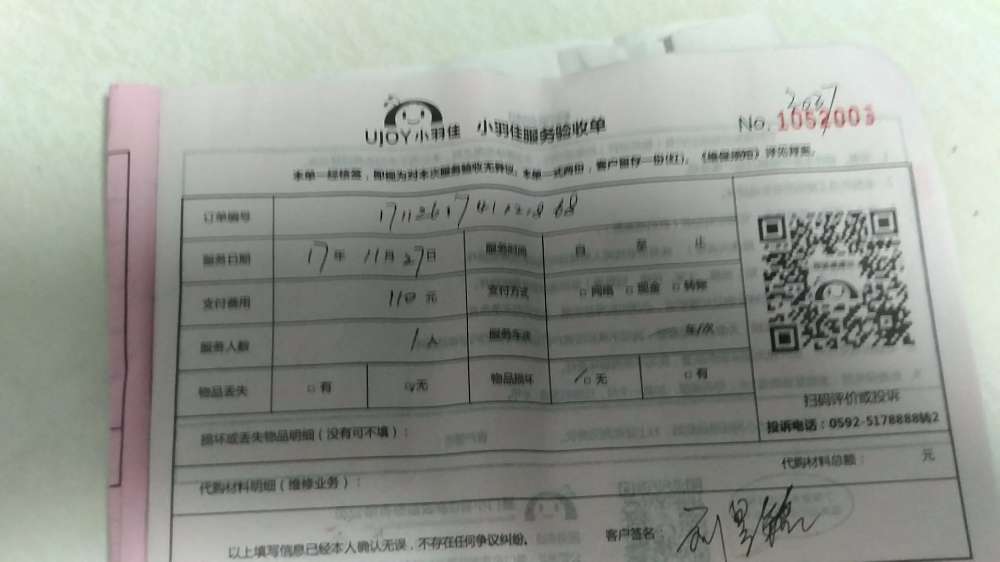 UJOY小羽佳 小羽佳服务验收单 No. 1052003
本单一经核签，即视为对本次服务验收无异议。本单一式两份，客户留存一份(红)。《维保须知》详见背面。
订单编号
服务日期 17年 11月 27日 服务时间 自 至 止
支付费用 110元 支付方式 □网络 □现金 □转账
服务人数 1人 服务车次 车/次
物品丢失 □有 □无 物品损坏 □无 □有
扫码评价或投诉
投诉电话：0592-5178888转2
损坏或丢失物品明细（没有可不填）：
代购材料明细（维修业务）： 代购材料总额： 元
以上填写信息已经本人确认无误，不存在任何争议纠纷。 客户签名：